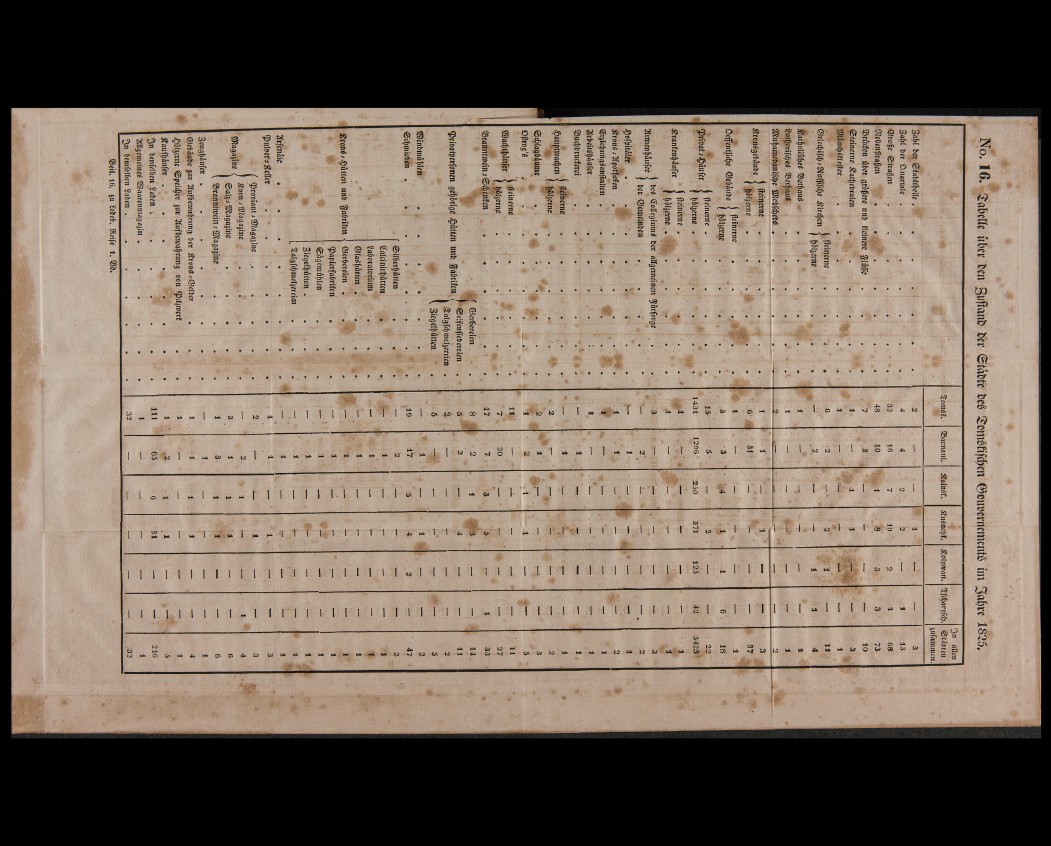 No. 16. Tabelle über den Zustand der Städte des Tomskischen Gouvernements im Jahre 1825.
Tomsk. Barnaul. Kainsk. Kusnezk. Kolywan. In allen Städten zusammen.
Zahl der Stadttheile 2 — — 1 — — 3
Zahl der Quartale 4 4 2 2 — 1 13
Große Straßen 32 16 7 10 2 1 68
Nebenstraßen 48 10 1 8 3 3 73
Brücken über größere und kleinere Flüsse 7 3 — — — — 10
Steinerne Kathedralen 1 — 1 1 — — 3
Mönchsklöster 1 — — — — — 1
Griechisch-Russische Kirchen { steinerne 6 2 — 2 1 — 11
hölzerne — 2 — — 1 1 4
Katholisches Bethaus 1 — — — — — 1
Lutherisches Bethaus 1 — — — — — 1
Muhamedanische Metscheds 2 — — — — — 2
Kronsgebäude { steinerne 1 1 — 1 — — 3
hölzerne 6 31 — — — — 37
Oeffentliche Gebäude { steinerne 1 — — — — — 1
hölzerne 3 3 4 1 1 6 18
Privat-Häuser { steinerne 15 5 — 2 — — 22
hölzerne 1431 1206 250 371 123 42 3423
Krankenhäuser { steinerne 1
hölzerne 1
Armenhäuser { des Collegiums der allgemeinen Fürsorge 3 — — — — — 3
der Gemeinden
Hospitäler
Krons-Apotheken 1 1 — — — — 2
Erziehungsanstalten
Arbeitshäuser 1 — — — — — 1
Buchdruckerei — 1 — — — — 1
Hauptwachen { steinerne — 1 — — — — 1
hölzerne 2 — — — — — 2
Schlagbäume 2 1 — — — — 3
Ostrog's 1 2 1 1 — — 5
Wachthäuser { steinerne 11 — — — — — 11
hölzerne 7 20 — — — — 27
Branntwein-Schenken 17 7 3 5 — 1 33
Privatpersonen gehörige Hütten und Fabriken { Gerbereien 8 2 1 3 — — 14
Seifensiedereien 5 2 — 4 — — 11
Talgschmelzereien 2 — — — — — 2
Ziegelhütten 5 — — — — — 5
Windmühlen — 1 — 1 — — 2
Schmieden 19 17 5 4 2 — 47
Krons-Hütten und Fabriken { Silberhütten — 2 — — — — 2
Salinichütten — 1 — — — — 1
Laboratorium — 1 — — — — 1
Glashütten — 1 — — — — 1
Gerbereien — 1 — — — — 1
Papierfabriken — 1 — — — — 1
Sägemühlen — 1 — — — — 1
Ziegelhütten — 1 — — — — 1
Talgschmelzereien — 1 — — — — 1
Arsenäle — 1 — — — — 1
Pulver-Keller 1 1 — 1 — — 3
Magazine { Proviant-Magazine 2 — — 1 — — 3
Korn-Magazine — 2 1 — — 1 4
Salz-Magazine 3 1 1 1 — — 6
Branntwein-Magazine 1 3 1 1 — — 6
Zeughäuser — 1 — — — — 1
Gebäude zur Aufbewahrung der Krons-Gelder 1 1 1 1 — — 4
Hölzerne Speicher zur Aufbewahrung von Pelzwerk 1 — — — — — 1
Kaufhäuser 1 2 1 1 — — 5
In denselben Laden 111 65 9 31 — — 216
Allgemeines Waarenmagazin 1 — — — — — 1
In demselben Laden 32 — — — — — 32
Beil. 16. zu Ledeb. Reise 1. Bd.